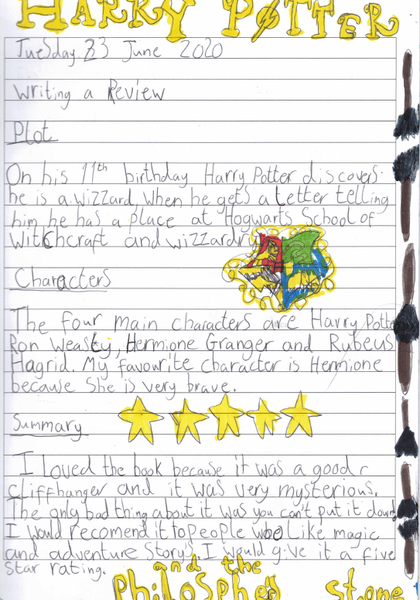 HARRY POTTER
Tuesday 23 June 2020
Writing a Review
Plot
On his 11th birthday Harry Potter discovers
he is a wizzard, When he gets a Letter telling
him he has a place at Hogwarts School of
Witchcraft and wizzardry
Characters
The four main characters are Harry Potter
Ron Weasty, Hermione Granger and Rubeus
Hagrid. My favourite character is Hermione
because she is very brave.
Summary
I loved the book because it was a good
cliffhanger and it was very mysterious.
The only bad thing about it was you can't put it down!
I would recomend it to people who like magic
and adventure storys. I would give it a five
star rating.
and the
Philosphes stone